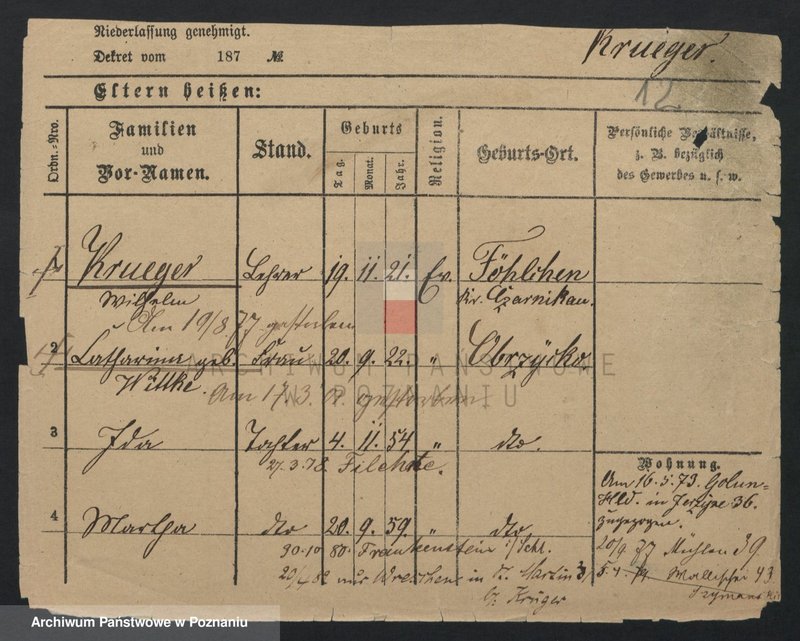 Niederlassung genehmigt.
Dekret vom 187 №.
Krueger.
12
Eltern heißen:
Ordn.-Nro.
Familien
und
Vor-Namen.
Stand.
Geburts
Tag.
Monat.
Jahr.
Religion.
Geburts-Ort.
Persönliche Verhältnisse,
z. B. bezüglich
des Gewerbes u. s. w.
1 Krueger Lehrer 19. 11. 21. Ev. Föhlchen
Wilhelm Kr. Czarnikau.
Am 19/8 77 gestorben
2 Catharina geb. Frau 20. 9. 22. " Obrzycko.
Wittke. Am 17.3. gestorben
3 Ida Tochter 4. 11. 54 " dto.
27.3.78. Filehne.
Wohnung.
Am 16.5.73. Golun-
Hld. in Jerzyce 36.
zugezogen.
4 Martha dto 20. 9. 59. " dto
30.10 80. Frankenstein i/Schl.
20/9 77 Mühlen 39
20/4 82 aus Wreschen in St. Martin 3
5.4.79 Wallischei 43
b/ Krüger
ARCHIWUM PAŃSTWOWE
W POZNANIU
Archiwum Państwowe w Poznaniu